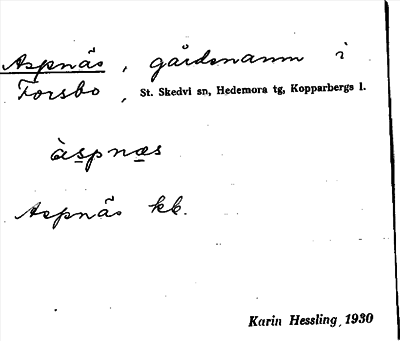 Aspnäs, gårdsnamn i
Forsbo, St. Skedvi sn, Hedemora tg, Kopparbergs l.
àspnæs
Aspnäs kk.
Karin Hessling, 1930